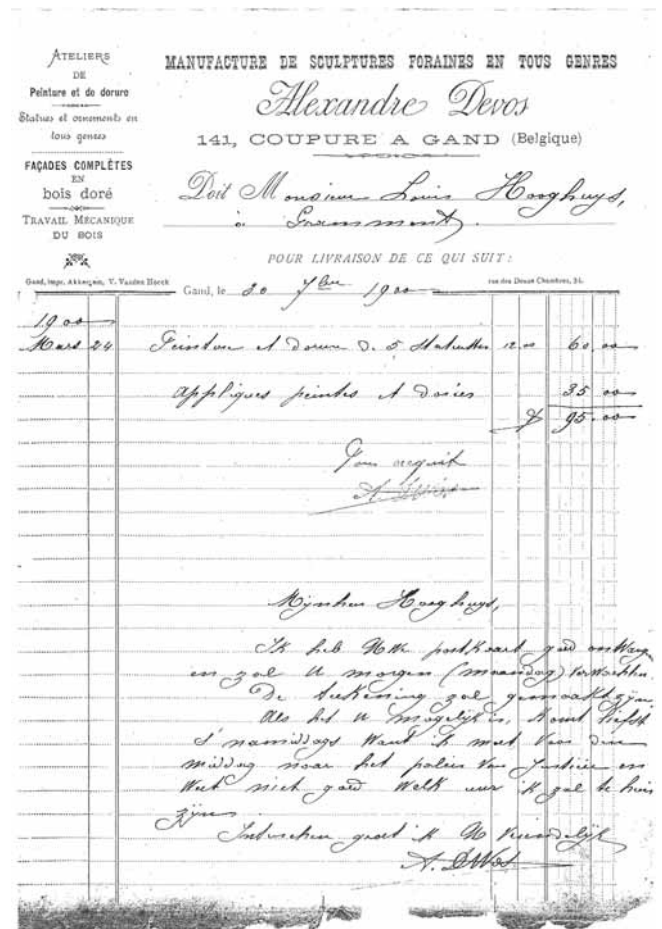 ATELIERS
DE
Peinture et de dorure
Statues et ornements en
tous genres
FAÇADES COMPLÈTES
EN
bois doré
TRAVAIL MÉCANIQUE
DU BOIS
MANUFACTURE DE SCULPTURES FORAINES EN TOUS GENRES
Alexandre Devos
141, COUPURE A GAND (Belgique)
Doit Monsieur Louis Hooghuys,
à Grammont.
POUR LIVRAISON DE CE QUI SUIT:
Gand, impr. Akkergem, V. Vanden Haeck
rue des Douze Chambres, 34.
Gand, le 20 7bre 1900
1900
Mars 24 Peinture et dorure de 5 statuettes 12.00 60.00
Appliques peintes et dorées 35.00
95.00
Pour acquit
A. Devos
Mijnheer Hooghuys,
Ik heb UWe postkaart goed ontvangen
en zal U morgen (maandag) verwachten
De teekening zal gemaakt zijn.
Als het U mogelijk is, komt liefst
s' namiddags want ik moet voor den
middag naar het paleis van Justicie en
weet niet goed welk uur ik zal te huis
zijn
Intusschen groet ik U vriendelijk
A. DeVos